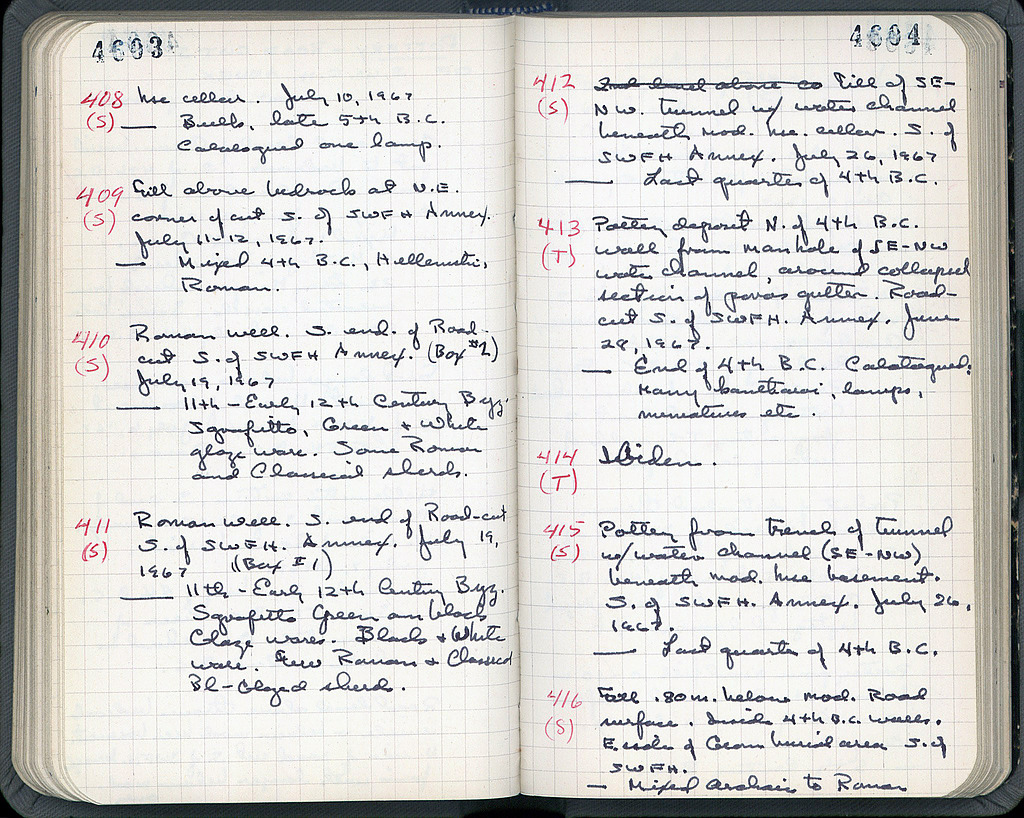 4603
408 hse cellar. July 10, 1967
(S) — Bulk, late 5th B.C.
Catalogued one lamp.
409 Fill above bedrock at N.E.
(S) corner of cut S. of SWFH Annex.
July 11-12, 1967.
— Mixed 4th B.C., Hellenistic,
Roman.
410 Roman well. S. end. of Road-
(S) cut S. of SWFH Annex. (Box #2)
July 19, 1967
— 11th - Early 12th Century Byz.
Sgraffitto, Green + White
glaze ware. Some Roman
and Classical sherds.
411 Roman well. S. end of Road-cut
(S) S. of SWFH. Annex. July 19,
1967 (Box #1)
— 11th - Early 12th Century Byz.
Sgraffitto Green on black
Glaze wares. Black + White
ware. Few Roman + Classical
Bl-Glazed sherds.
4604
412 2nd level above co Fill of SE-
(S) NW. tunnel w/ water channel
beneath mod. hse. cellar. S. of
SWFH Annex. July 26, 1967
— Last quarter of 4th B.C.
413 Pottery deposit N. of 4th B.C.
(T) wall from manhole of SE-NW
water channel, around collapsed
section of poros gutter. Road-
cut S. of SWFH. Annex. June
28, 1967.
— End of 4th B.C. Catalogued:
Many kantharoi, lamps,
miniatures etc.
414 Ibidem.
(T)
415 Pottery from trench of tunnel
(S) w/water channel (SE-NW)
beneath mod. hse basement.
S. of SWFH. Annex. July 26,
1967.
— Last quarter of 4th B.C.
416 Fill .80m. below mod. Road
(S) surface. Inside 4th B.C. walls.
E. side of Geom burial area S. of
SWFH.
— Mixed Archaic to Roman